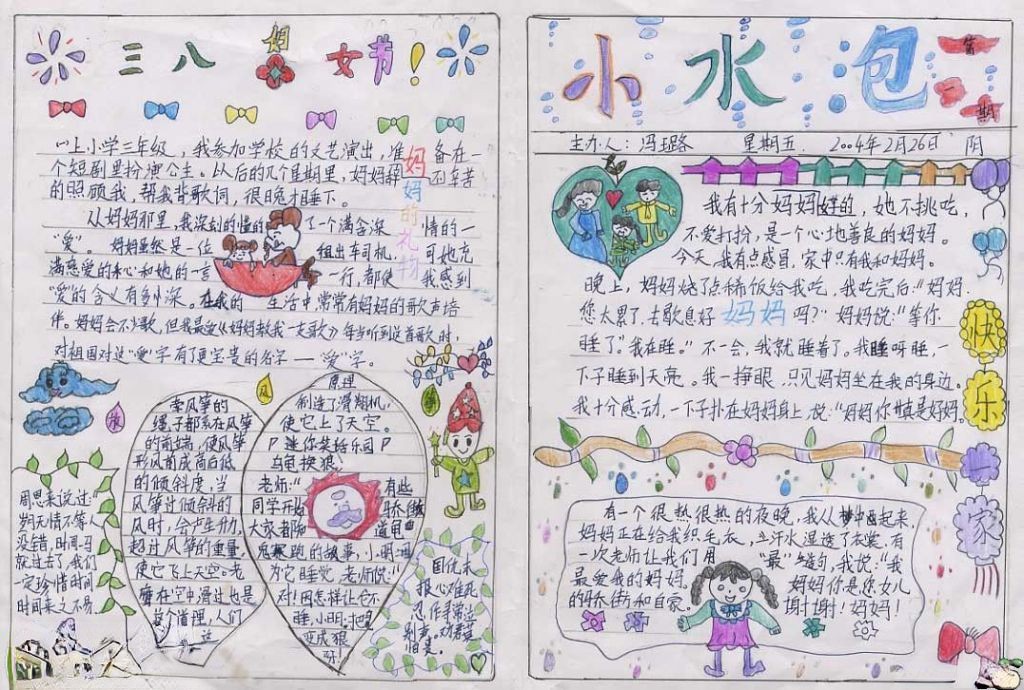 三八妇女节！
上小学三年级，我参加学校的文艺演出，准备在一
个短剧里扮演公主。以后的几个星期里，妈妈辞不辛苦
的照顾我，帮我背歌词，很晚才睡下。
妈妈的礼物
从妈妈那里，我深刻的懂的了一个满含深情的
“爱”。妈妈虽然是一位租出车司机，可她充
满慈爱的和她的一言一行，都使我感到
“爱的含义有多深。在我的生活中常常有妈妈的歌声培
伴。妈妈会不少歌，但我最爱《妈妈教我一支歌》每当听到这首歌时，
对祖国对这“爱”字有了更宝贵的名字——“爱”字。
放
风
筝
原理
牵风筝的
绳子都系在风筝
的前端，使风筝
形风前成高后低
的倾斜度，当
风筝过倾斜的
风时，会产生升力，
超过风筝的重量，
使它飞上天空。老
鹰在空中滑过也是
这个道理，人们
制造了滑翔机，
使它上了天空。
迷你笑话乐园
乌龟换狼
老师：“有些
同学开始
大家都知道龟
兔赛跑的故事，小明
为它睡觉，老师做：“
对！因怎样让它不
睡，小明：把
变成狼
呀！
周恩来说过：“
期无情不等人
没错，时间一马
就过去了，我们
一定珍惜时间
时间来之不易
国仇未
报心难死
忍作寻常泣
别声。劝君莫
惜
小水泡
第一期
主办人：冯璐 星期五 2004年2月26日 阴
我有十分妈妈好的，她不挑吃，
不爱打扮，是一个心地善良的妈妈。
今天，我有点感冒，家中只有我和妈妈。
晚上，妈妈烧了点稀饭给我吃，我吃完后：“妈妈
您太累了，去歇息好妈妈吗？”妈妈说：“等你
睡了”我在睡。”不一会，我就睡着了。我睡呀睡，一
下子睡到天亮。我一挣眼，只见妈妈坐在我的身边。
我十分感动，一下子扑在妈妈身上，说：“妈妈你真是好妈。
快乐一家
有一个很热很热的夜晚，我从梦中醒起来，
妈妈正在给我织毛衣，汗水湿透了衣裳。有
一次老师让我们用“最”造句，我说：“我
最爱我的妈妈。妈妈你是您女儿
的骄傲和自豪。妈妈！